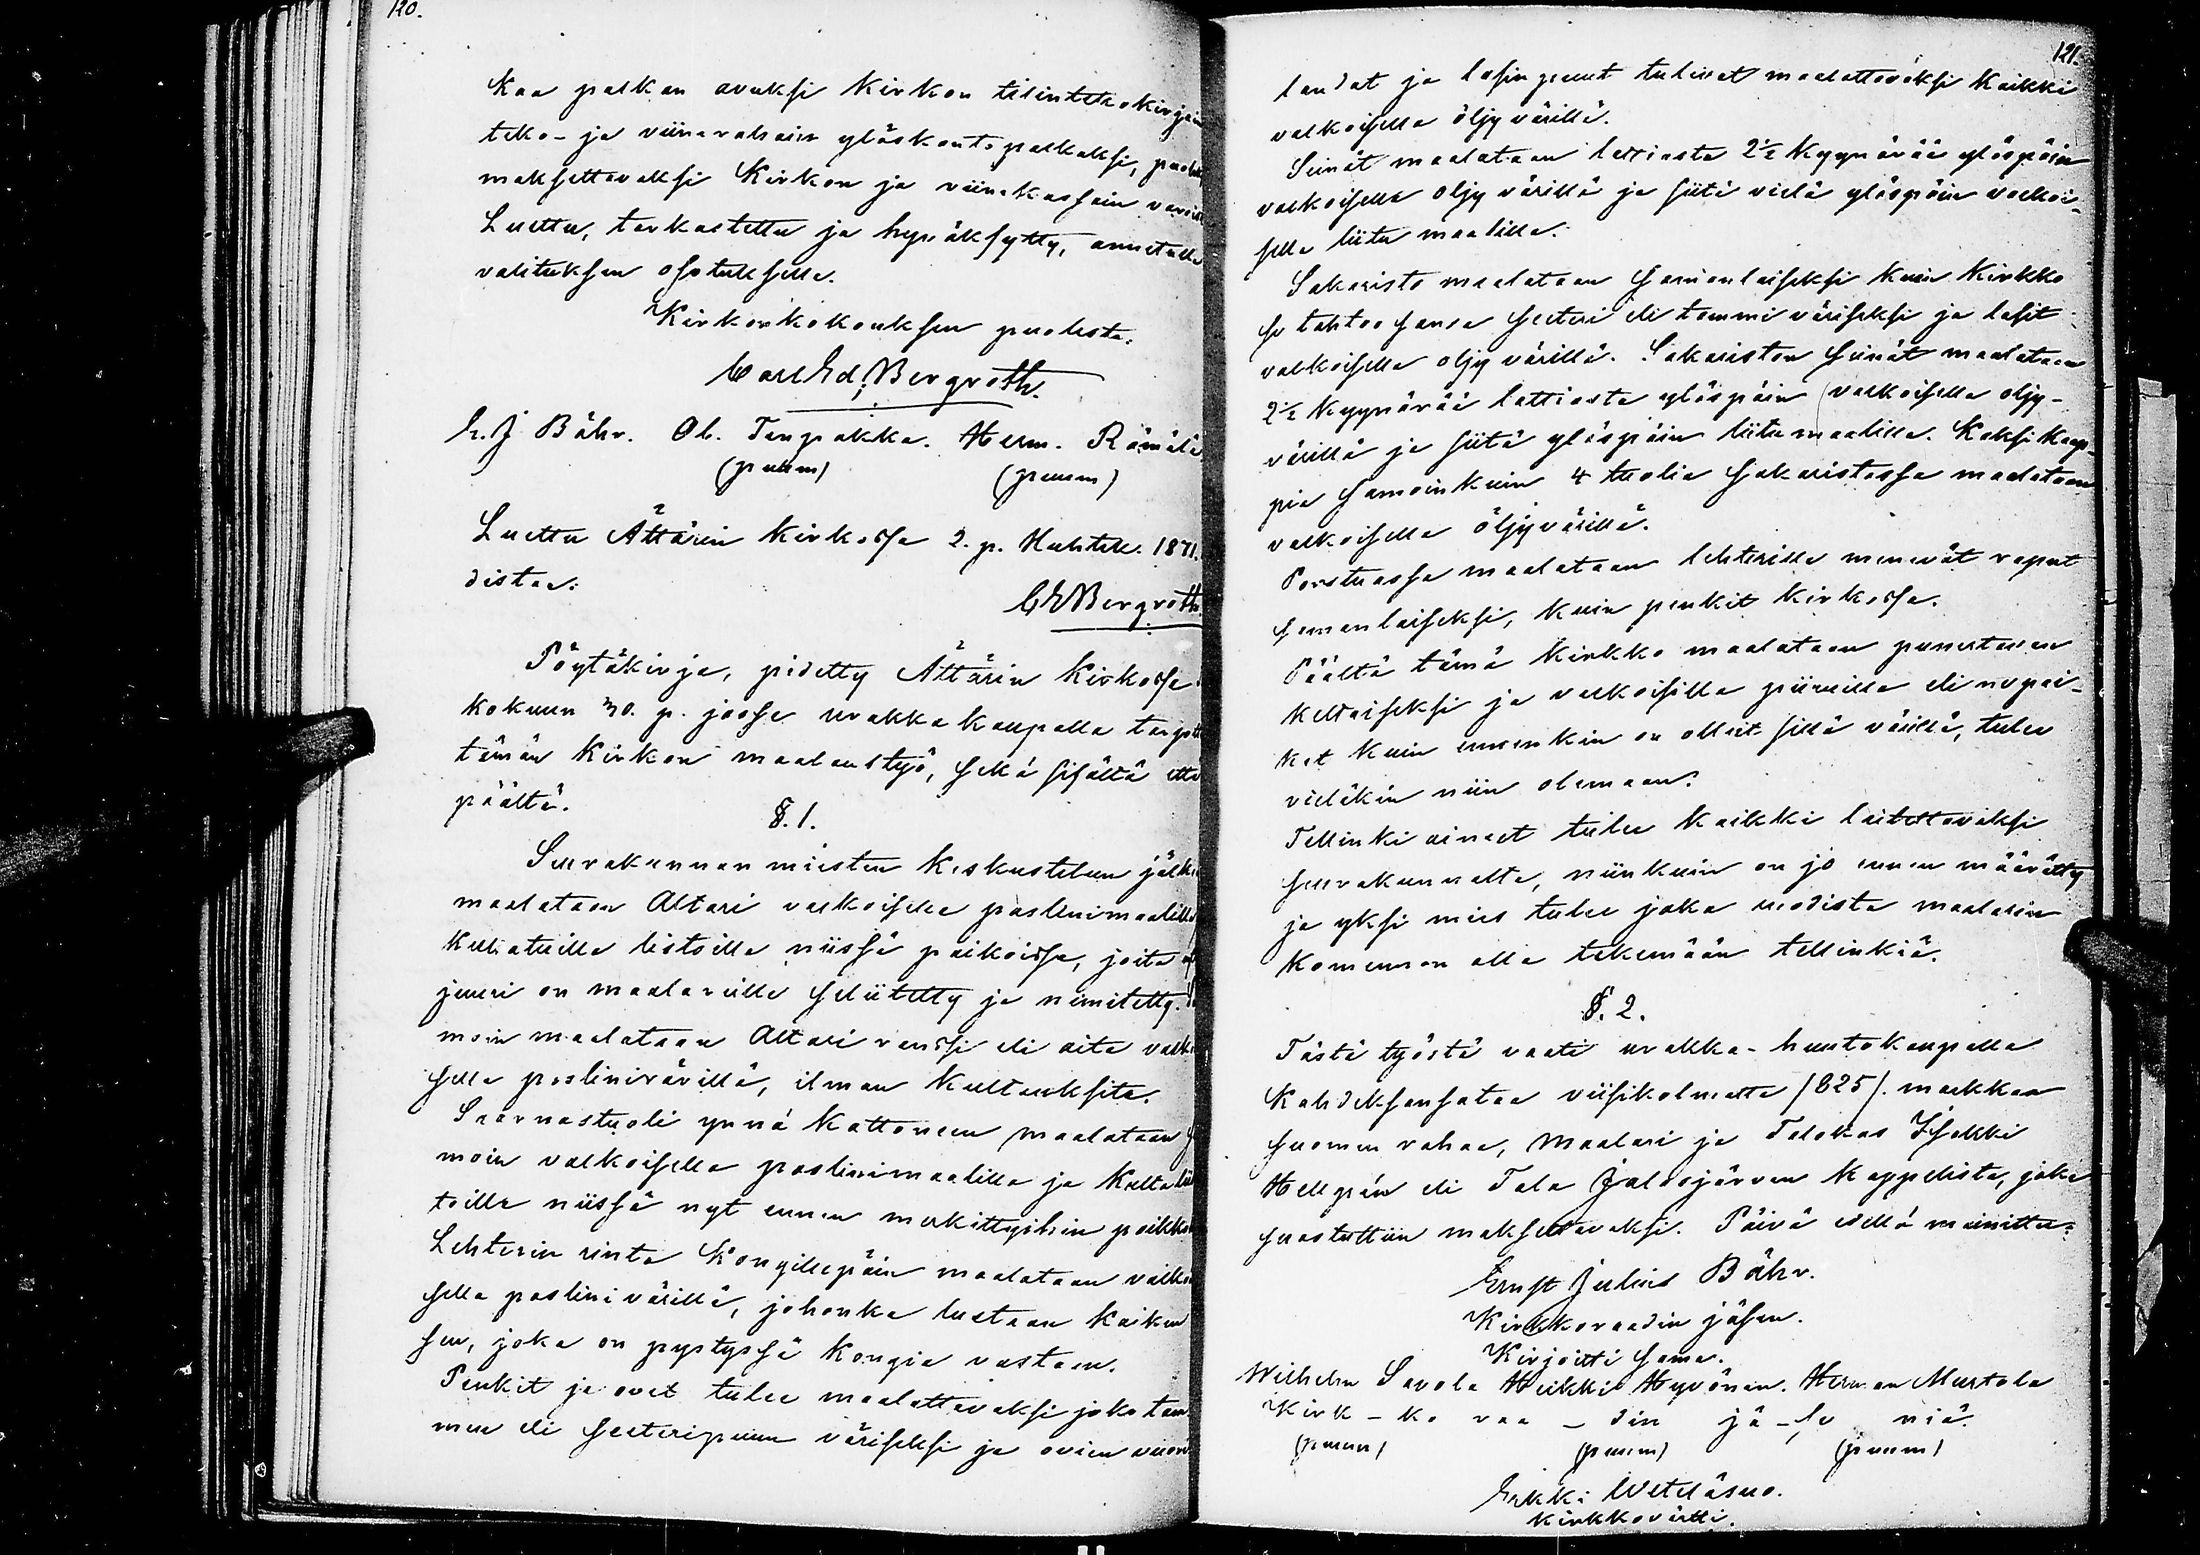 120.
kaa palkan avuksi Kirkon tilintekokirjain
teko- ja viinarahain ylöskantopalkaksi, puolit
maksettavaksi Kirkon ja viinakassain varoilla
Luettu, tarkastettu ja hyväksytty, annetulla
valituksen osotuksella.
Kirkonkokouksen puolesta:
Carl Ed. Bergroth.
E. J Bähr. Ob. Tenpakka. Herm. Rämälä
(puum) (puum)
Luettu Ättärin Kirkossa 2. p. Huhtik. 1871.
distaa:
CEBergroth.
Pöytäkirja, pidetty Ättärin Kirkossa
kokuun 30. p. jossa urakka kaupalla tarjot
tämän Kirkon maalaustyö, sekä sisältä että
päältä.
§. 1.
Seurakunnan miesten keskustelun jälke
maalataan Altari valkoisella poslinimaalilla
kullatuilla listoilla niissä paikoissa, joita
juuri on maalarille selitetty ja nimitetty.
moin maalataan Altari ranssi eli aita valko
sella poslinivärillä, ilman kultauksita.
Saarnastuoli ynnä Kattoneen maalataan
moin valkoisella poslinimaalilla ja kulta
toilla niissä nyt ennen merkittyihin paikko
Lehterin rinta Kongillepäin maalataan valko
sella poslinivärillä, johonka luetaan kaiken
sen, joka on pystyssä kongia vastaan.
Penkit ja ovet tulee maalattavaksi joko tam
men eli seeteripuun väriseksi ja ovien vuori
121.
laudat ja lasin puut tulevat maalattavaksi kaikki
valkoisella öljyvärillä.
Seinät maalataan lattiasta 2½ Kyynärää ylöspäin
valkoisella oljyvärillä ja siitä vielä ylöspäin valkoi-
sella liitu maalilla.
Sakaristo maalataan samanlaiseksi kuin Kirkko
se tahtoo sanoa seeteri eli tammi väriseksi ja lasit
valkoisella oljyvärillä. Sakariston seinät maalataan
2½ Kyynärää lattiasta ylöspäin valkoisella oljy-
värillä ja siitä ylöspäin liitumaalilla. Kaksi kaap-
pia samoinkuin 4 tuolia sakaristossa maalataan
valkoisella öljyvärillä.
Porstuassa maalataan lehterille menevät raput
samanlaiseksi, kuin penkit Kirkossa.
Päältä tämä Kirkko maalataan punertavan
keltaiseksi ja valkoisilla piiruilla eli ne pai-
kat kuin ennenkin on olleet sillä värillä, tulee
vieläkin niin olemaan.
Tellinki aineet tulee kaikki laitettavaksi
seurakunnalta, niinkuin on jo ennen määrätty
ja yksi mies tulee joka ruodista maalarin
komennon alla tekemään tellinkiä.
§. 2.
Tästä työstä vaati urakka-huutokaupalla
Kahdeksansataa viisikolmatta /825/. markkaa
suomen rahaa, Maalari ja Talokas Iisakki
Hellgrén eli Tala Jalasjärven Kappelista, joka
suostuttiin maksettavaksi. Päivä edellä mainittu:
Ernst Julius Bähr.
Kirkkoraadin jäsen.
Kirjoitti sama.
Wilhelm Savola Heikki Hyvönen. Herman Murtola
Kirk-ko raa-din jä-se niä.
(puum) (puum) (puum)
Erkki Weteläsuo.
Kirkkovärtti.